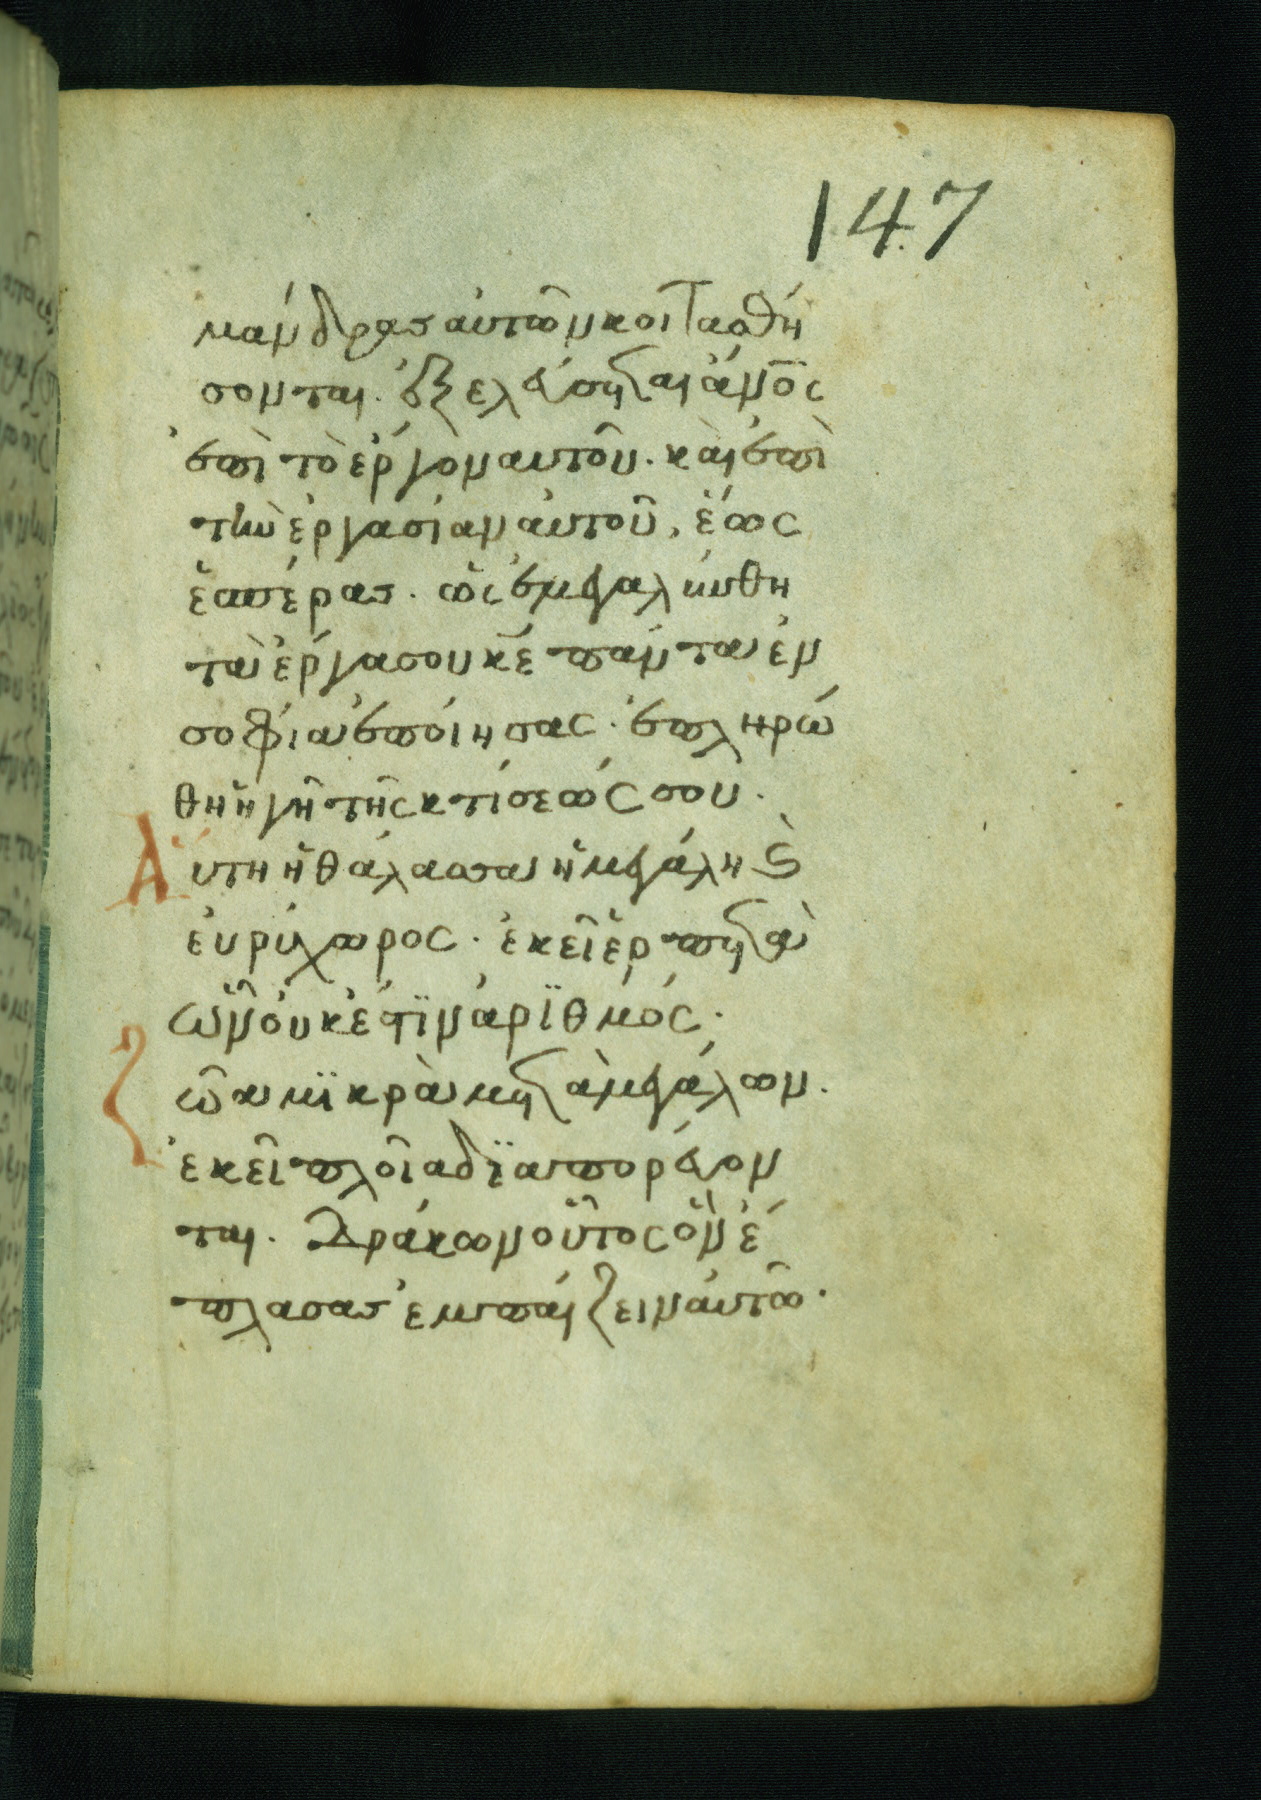 147
μάνδρας αὐτῶν κοιτασθή
σονται. ἐξελεύσεται ἄνος
ἐπὶ τὸ ἔργον αυτοῦ. καὶ ἐπὶ
τὴν ἐργασίαν ἀυτοῦ, ἕως
ἑσπέρας. ὡς ἐμεγαλύνθη
τὰ ἔργα σου κε πάντα ἐν
σοφία ἐποίησας. ἐπληρώ
θη ἡ γῆ τῆς κτίσεώς σου.
Αὕτη ἡ θάλασσα ἡ μεγάλη ϗ
ἐυρύχωρος. ἐκεῖ ἑρπετὰ
ὧν ὀυκ ἔστϊν ἀρϊθμός.
ζῶα μϊκρὰ μετὰ μεγάλων.
ἐκεῖ πλοῖα δϊαπορέυον
ται. Δράκων οὗτος ὃν ἔ
πλασας ἐμπαίζειν ἀυτῶ.